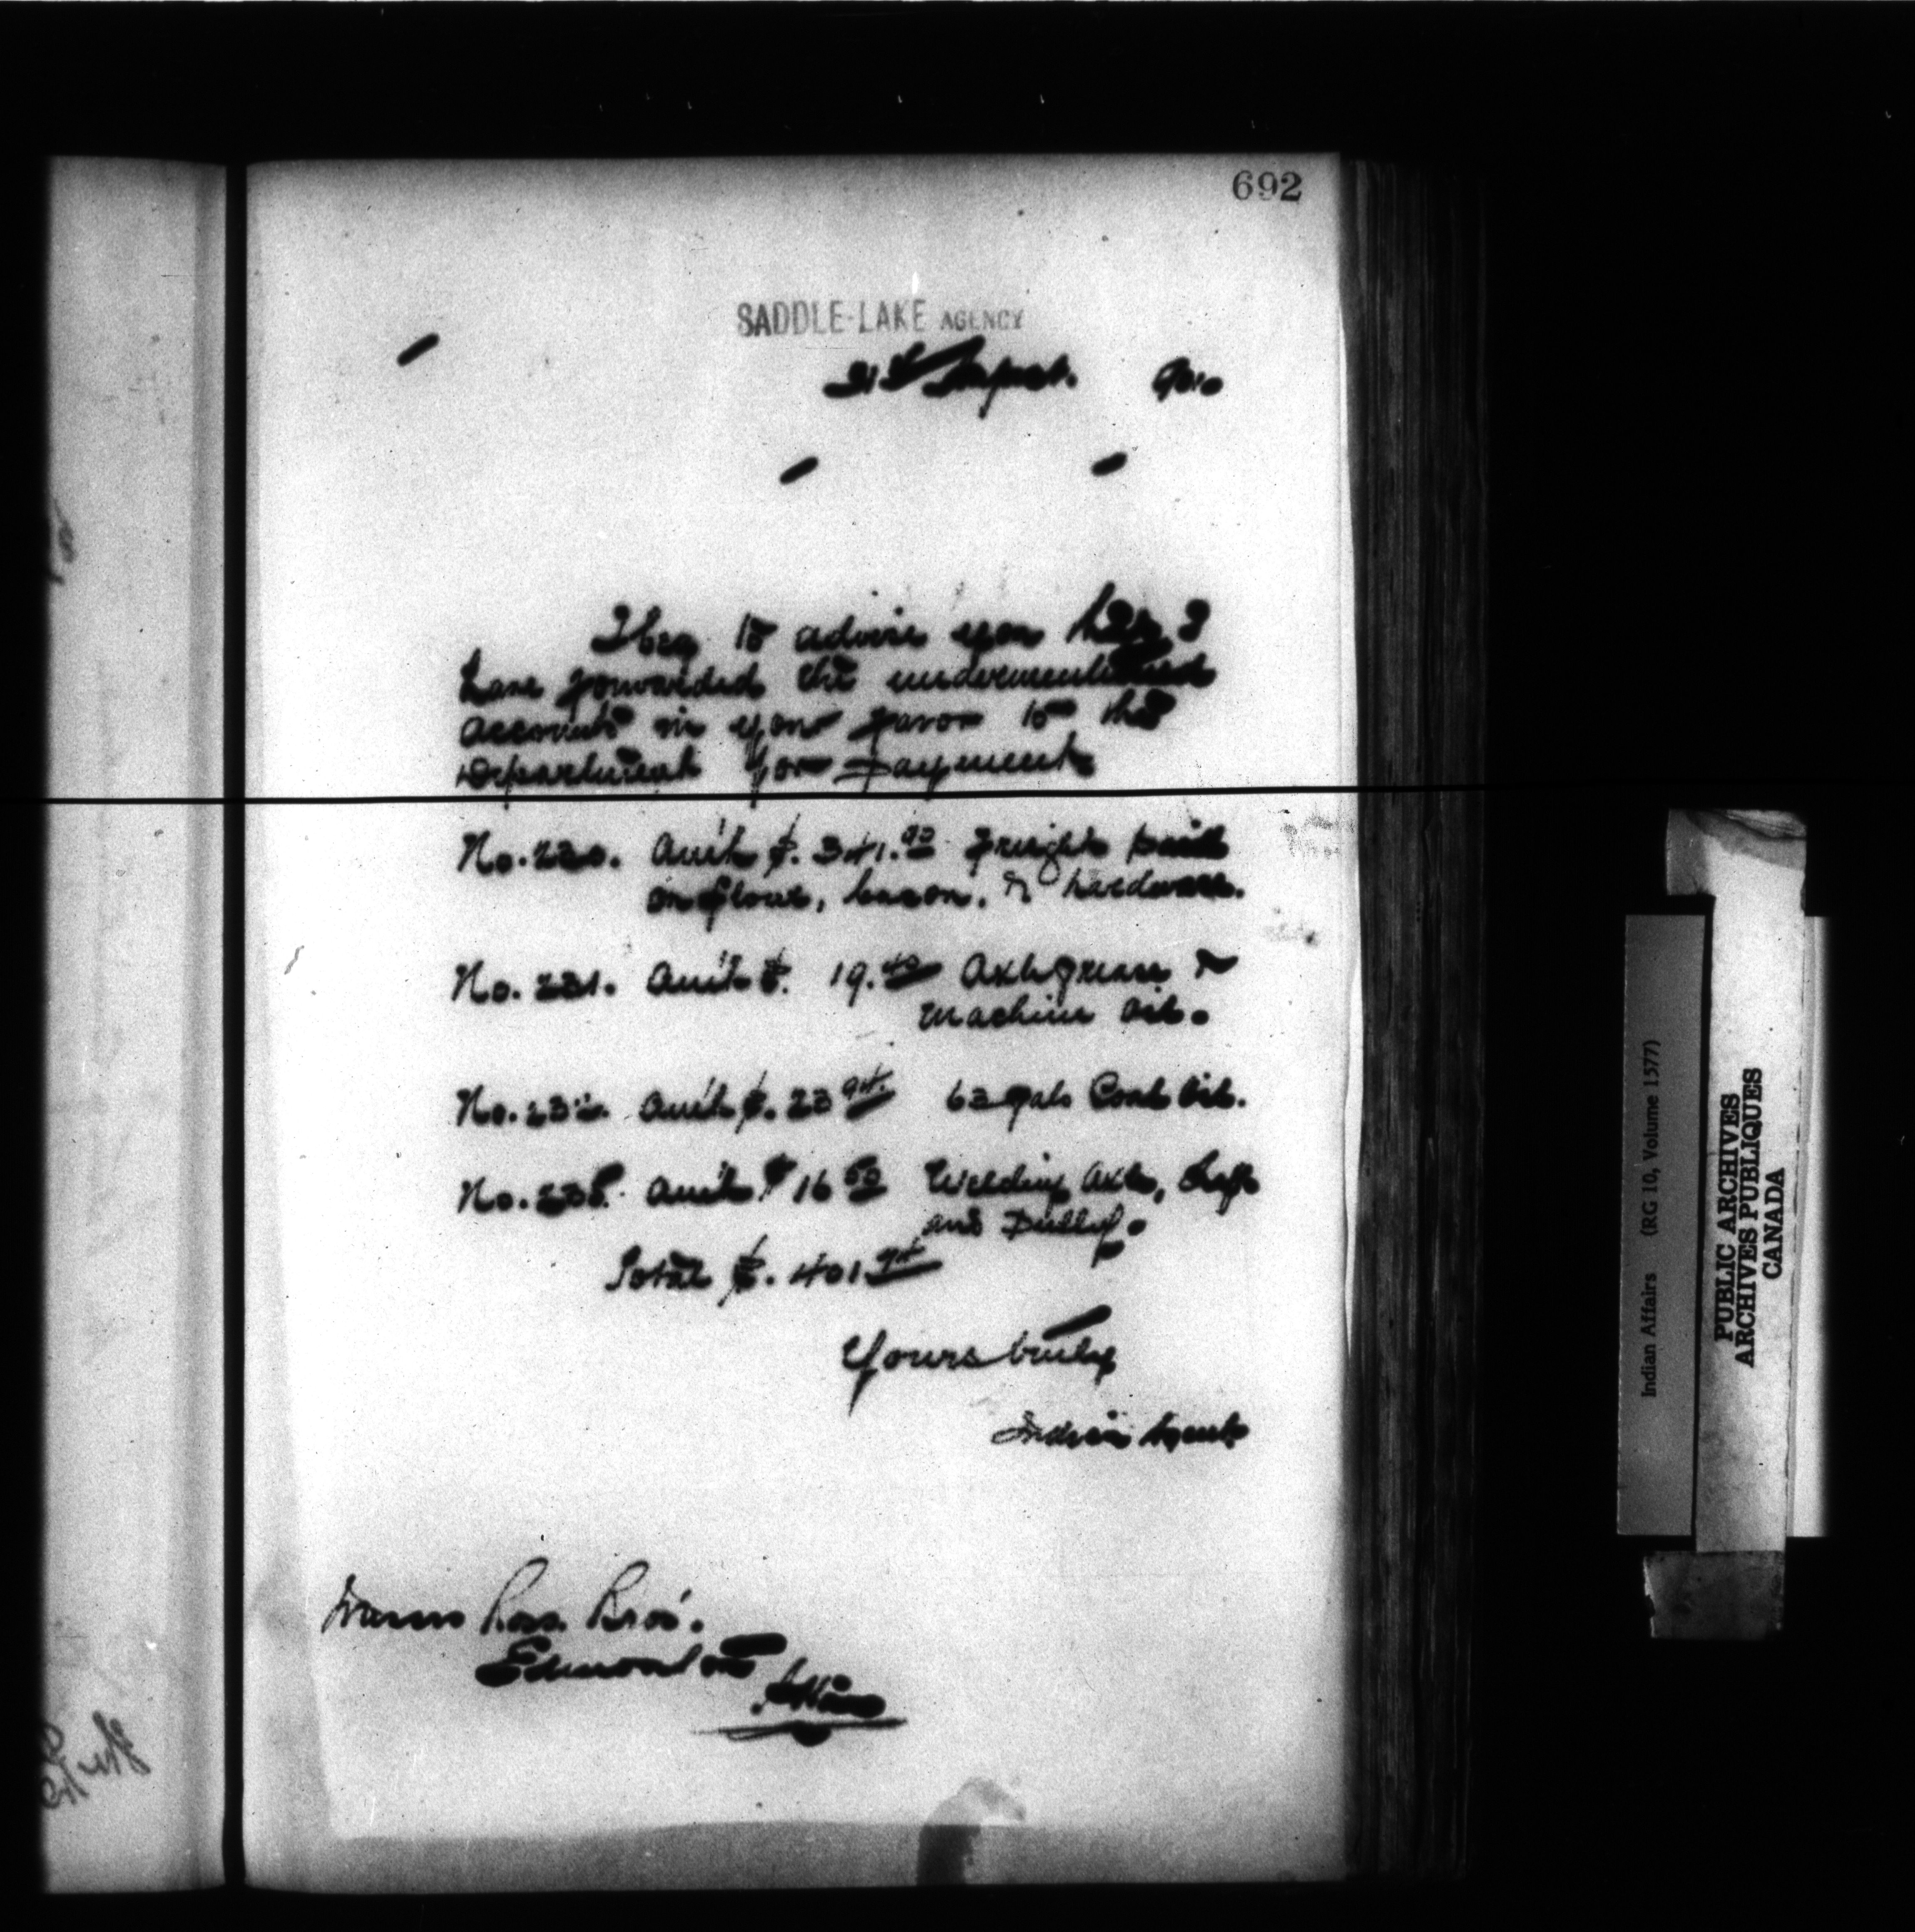 692
SADDLE-LAKE AGENCY
31st August. 90
I beg to advise you that I
have forwarded the undermentioned
accounts in your favor to the
Department for payment
No. 230. Am't $. 341.90 freight paid
on flour, bacon, & hardware.
No. 231. Am't $. 19.40 Axle grease &
machine oil.
No. 232. Am't $. 23 94 63 gals Coal Oil.
No. Am't $ 16 50 Welding axle, shaft
and Pulley.
Total $. 401 74
Yours truly
Indian Agent
Messrs Ross Bros.
Edmonton
Alta
Indian Affairs (RG 10, Volume 1577)
PUBLIC ARCHIVES
ARCHIVES PUBLIQUES
CANADA